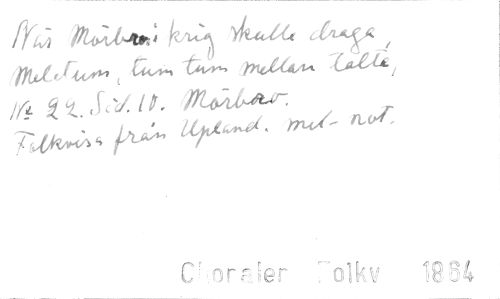 När Mörbro i krig skulle draga,
Meletum, tum tum mellan tälte,
No 22. Sid. 10. Mörbro.
Folkvisa från Upland. med not.
Choraler Folkv 1864